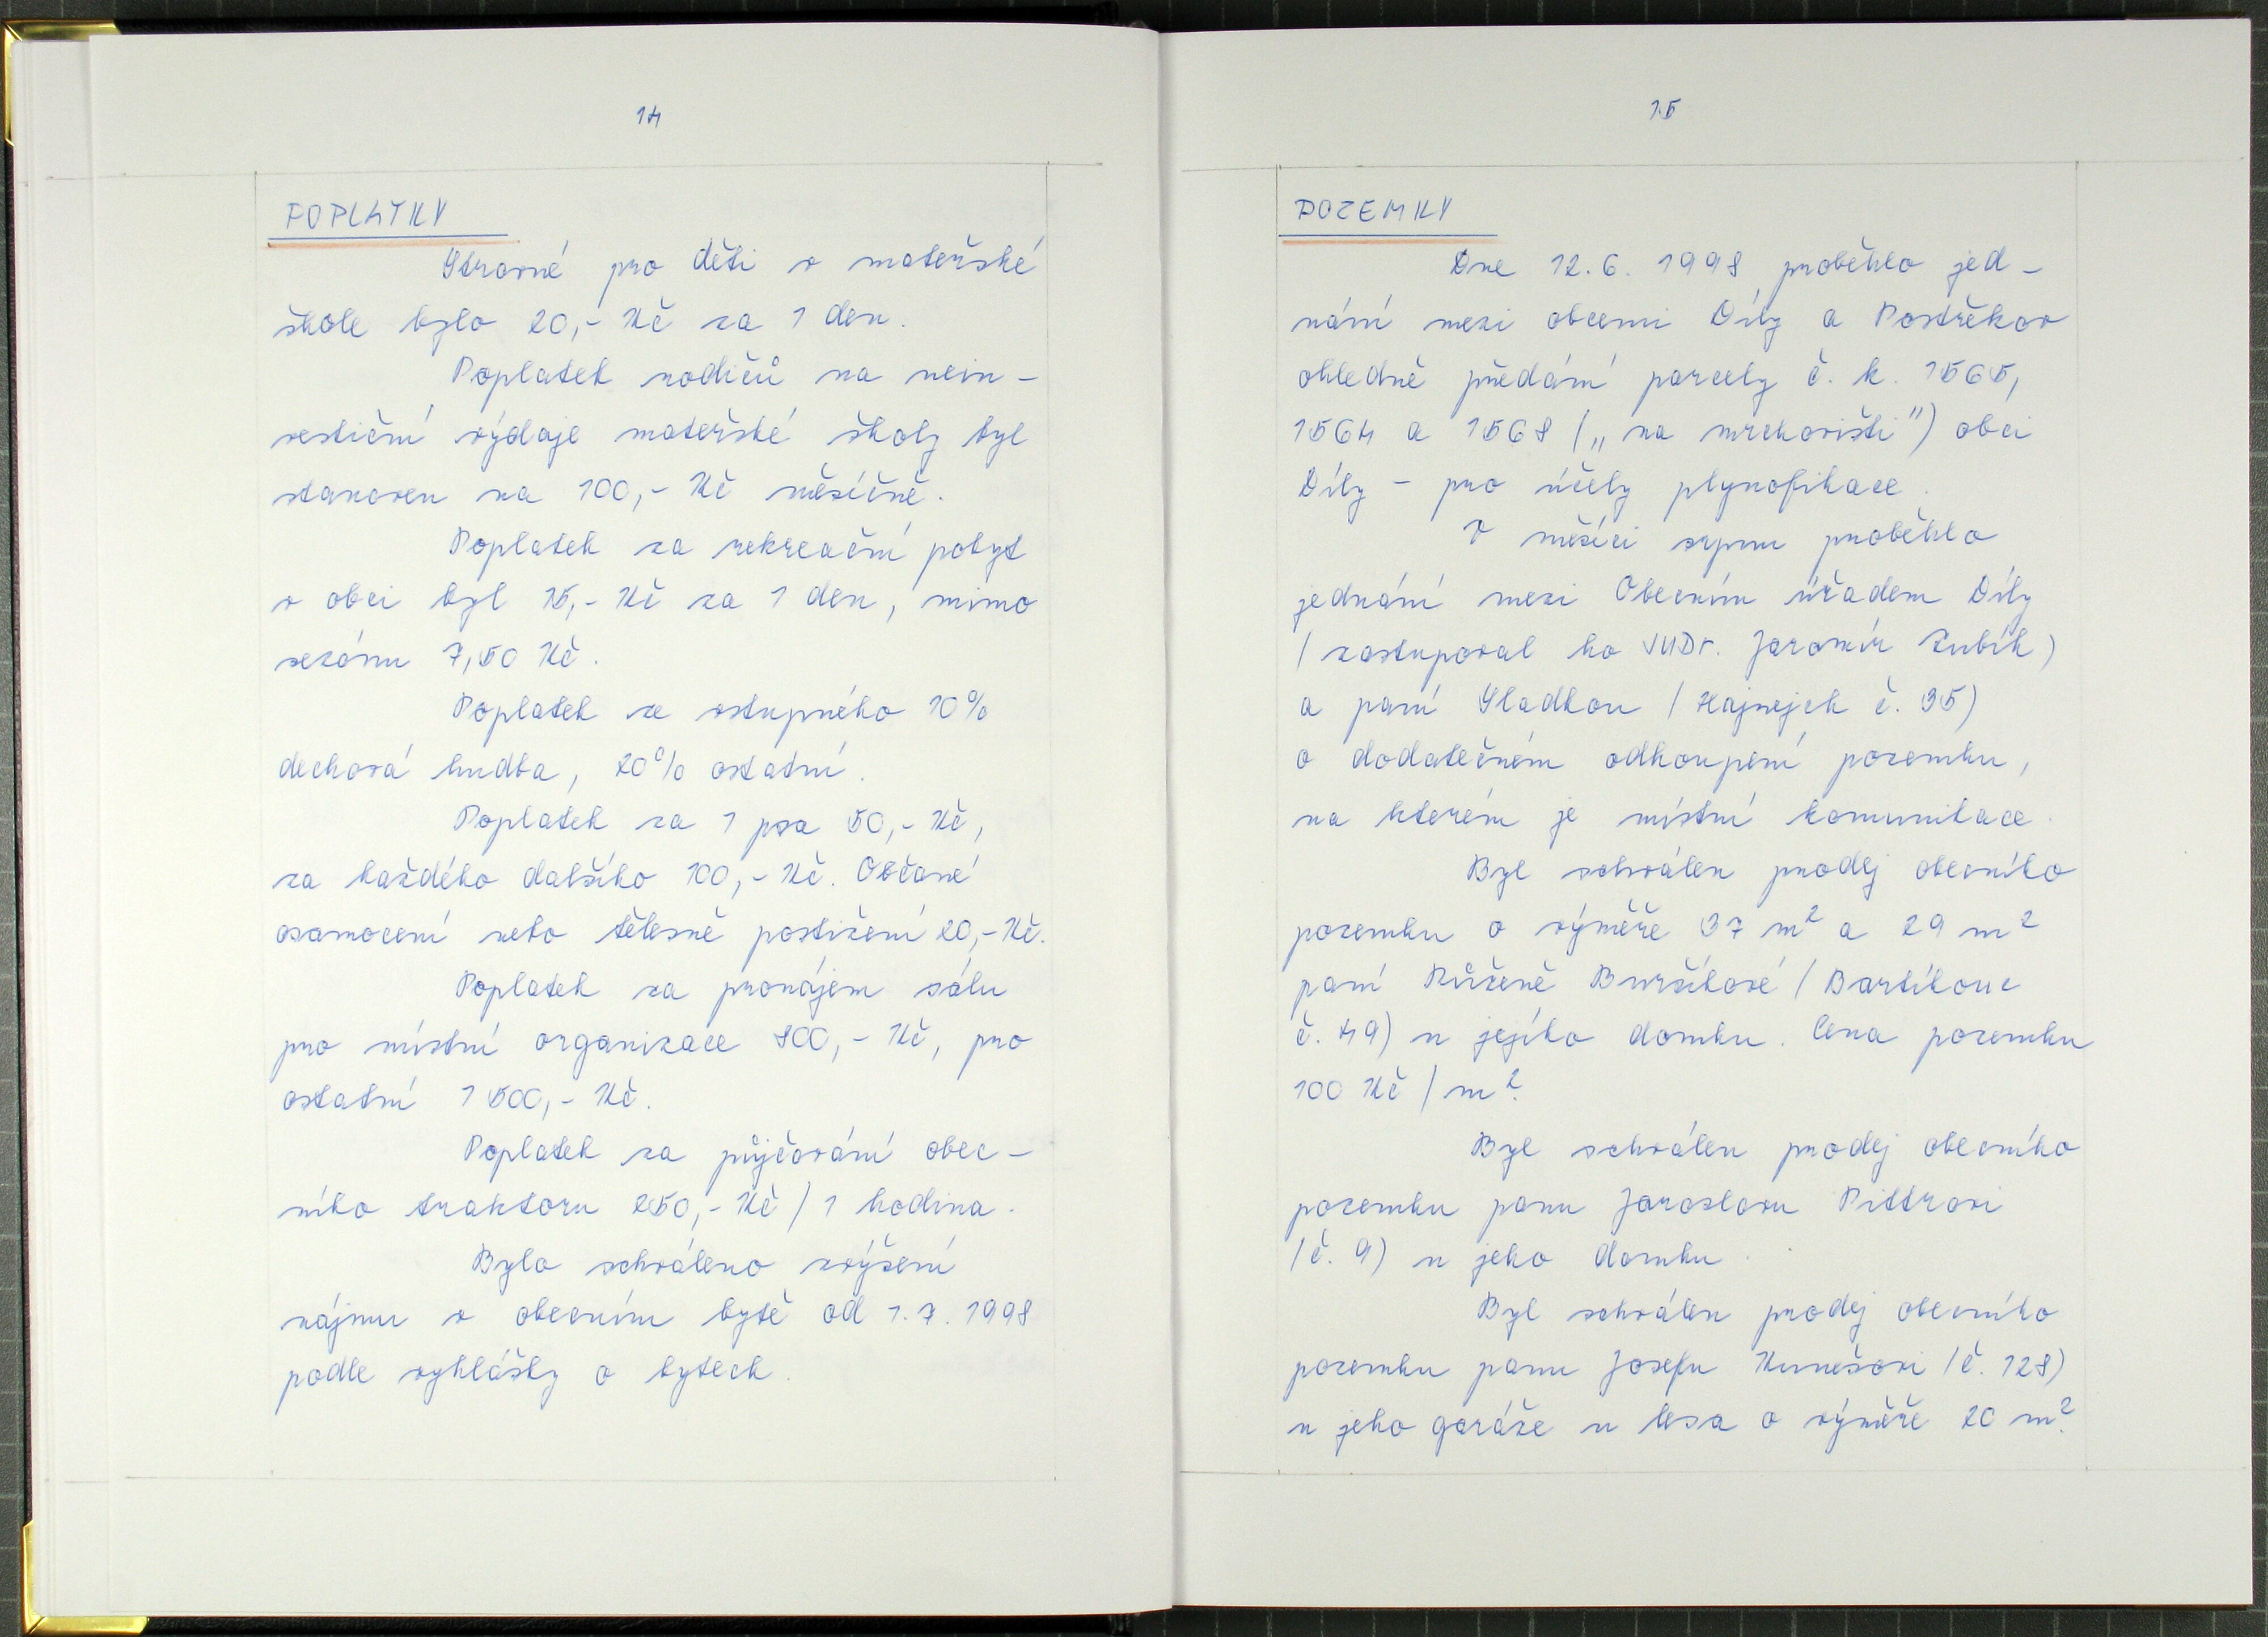 14
POPLATKY
Stravné pro děti v mateřské
škole bylo 20,- Kč za 1 den.
Poplatek rodičů na nein-
vestiční výdaje mateřské školy byl
stanoven na 100,- Kč měsíčně.
Poplatek za rekreační pobyt
v obci byl 15,- Kč za 1 den, mimo
sezónu 7,50 Kč.
Poplatek ze vstupného 10%
dechová hudba, 20% ostatní.
Poplatek za 1 psa 50,- Kč,
za každého dalšího 100,- Kč. Občané
osamocení nebo tělesně postižení 20,- Kč.
Poplatek za pronájem sálu
pro místní organizace 800,- Kč, pro
ostatní 1 500,- Kč.
Poplatek za půjčování obec-
ního traktoru 250,- Kč / 1 hodina.
Bylo schváleno zvýšení
nájmu v obecním bytě od 1.7.1998
podle vyhlášky o bytech.
15
POZEMKY
Dne 12.6. 1998 proběhlo jed-
nání mezi obcemi Díly a Postřekov
ohledně předání parcely č. k. 1565,
1564 a 1568 („na mrchovišti") obci
Díly - pro účely plynofikace.
V měsíci srpnu proběhlo
jednání mezi Obecním úřadem Díly
/ zastupoval ho JUDr. Jaromír Zubík)
a paní Sladkou / Hajnejch č. 35)
o dodatečném odkoupení pozemku,
na kterém je místní komunikace.
Byl schválen prodej obecního
pozemku o výměře 37 m² a 29 m²
paní Růženě Buršíkové / Bartíkouc
č. 49) u jejího domku. Cena pozemku
100 Kč / m².
Byl schválen prodej obecního
pozemku panu Jaroslavu Pittrovi
/č. 9) u jeho domku.
Byl schválen prodej obecního
pozemku panu Josefu Kunešovi /č. 128)
u jeho garáže u lesa o výměře 20 m².